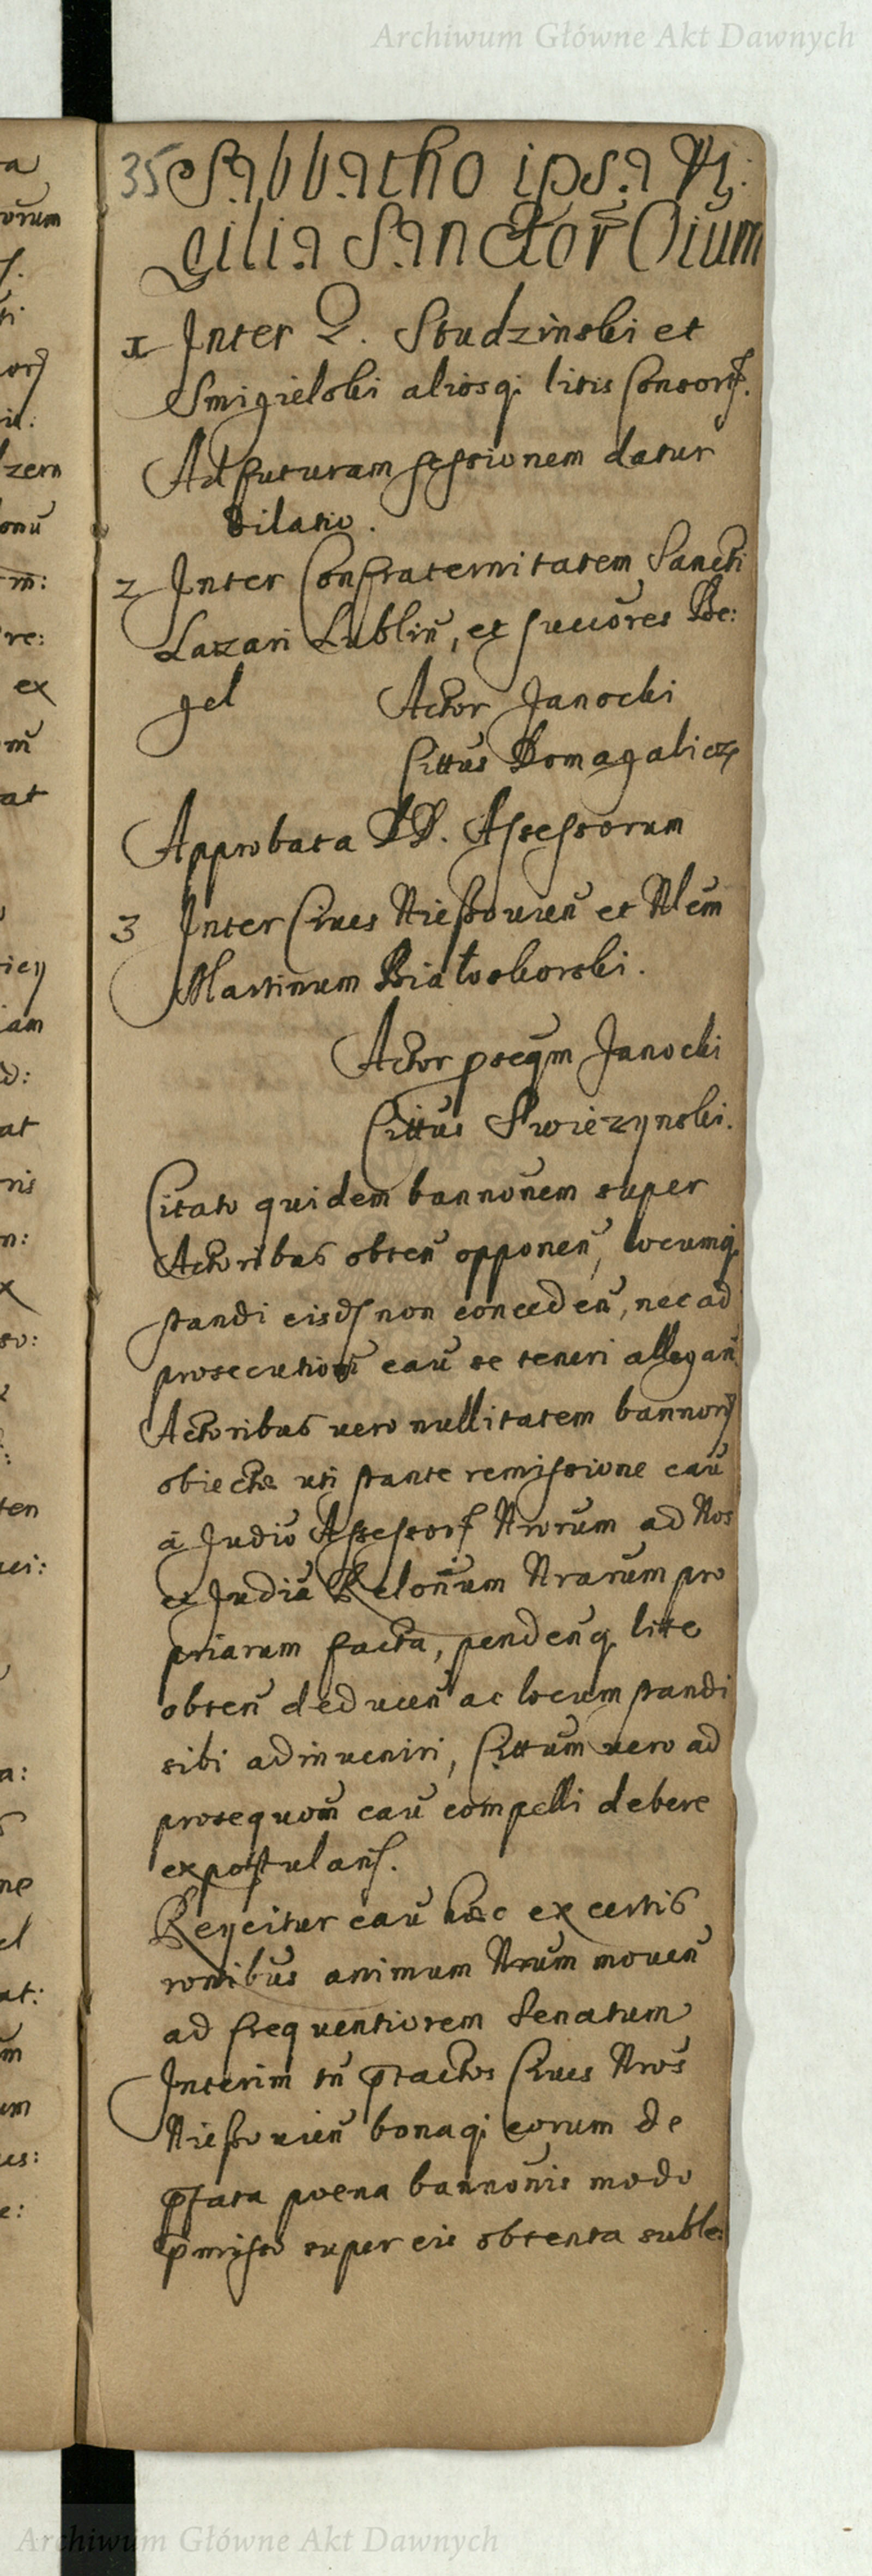 Archiwum Główne Akt Dawnych
35 Sabbatho ipsa Vi:
gilia Sanctor̄ Oīum
1 Inter G. Studzinski et
Smigielski aliosq; litis Consort.
Ad futuram sessionem datur
dilatio.
2 Inter Confraternitatem Sancti
Lazari Lublin̄, et succōres Be:
gel Actor Janocki
Cittus Domagalicz
Approbata DD. Assessorum
3 Inter Cives Nieszovien̄ et
Martinum Białoskorski.
Actor Janocki
Cittūs Swiezynski.
Citato quidem bannōnem super
Actoribus obten̄ opponen̄, locumq;
standi non conceden̄, nec ad
prosecutionē cau̅ se teneri allegan̄
Actoribus vero nullitatem bannor̄
obiecta uti stante remissione cau̅
à Judiō Assessor Nrorum ad Nos
et Judia Relōnum Nrarum pro
priarum facta, pendenq; lite
obten̄ deducen̄ ac locum standi
sibi adinveniri, Cittum vero ad
prosequom̄ cau̅ compelli debere
expostulan.
Reycitur cau̅ haec ex certis
ronibus animum Nrum moven̄
ad frequentiorem Senatum
Interim tn̄ p̄tactos Cives Nros
Nieszovien̄ bonaq; eorum de
p̄fata poena bannōnis modo
p̄misso super eis obtenta suble:
Archiwum Główne Akt Dawnych